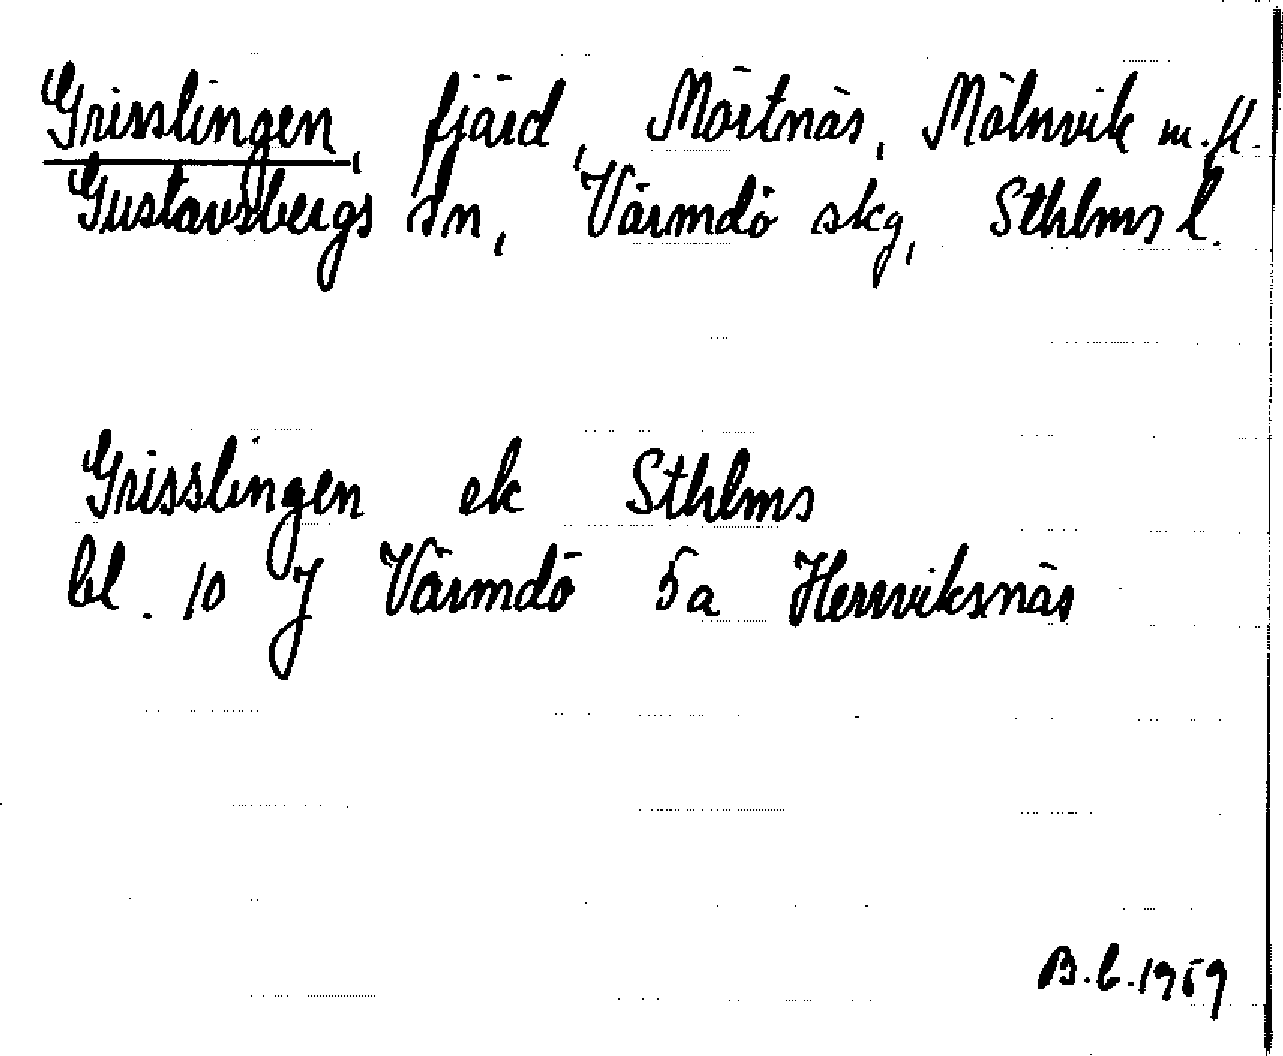 Grisslingen, fjärd, Mörtnäs, Mölnvik m.fl.
Gustavsbergs sn, Värmdö skg, Sthlms l.
Grisslingen ek Sthlms
bl. 10 J Värmdö 5a Herrviksnäs
B.b.1969